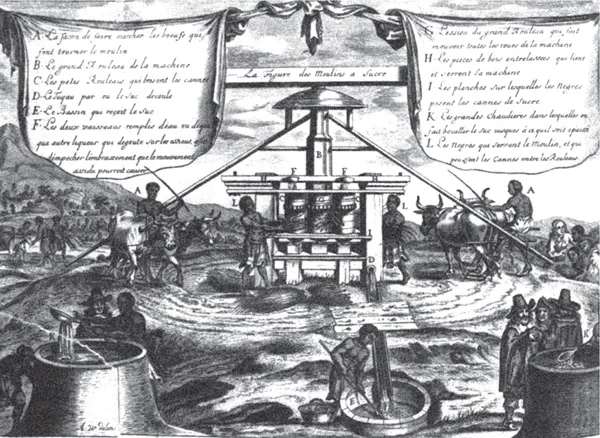 A La façon de faire marcher les boeufs qui
font tourner le moulin
B Le grand Rouleau de la machine
C Les petis Rouleaux qui brisent les cannes
D Le Tuyau par ou le Suc decoule
E Le Bassin qui reçoit le suc
F Les deux vaisseaux remplis d'eau ou de
que autre liqueur qui degoute sur les
d'empécher l'ambrazement que le mouvement
assidu pourroit causer
La Figure des Moulins a Sucre
G L'essieu du grand Rouleau qui fait
mouvoir toutes les roues de la machine
H Les pieces de bois entrelassées qui tiene
et serrent la machine
I Les planches sur lesquelles les Negres
posent les cannes de Sucre
K Les grandes Chaudieres dans lesquelles on
fait bouillir le suc jusques à ce qu'il soit épaissi
L Les Negres qui servent le Moulin, et qui
poussent les Cannes entre les Rouleaux
A
B
F
F
H
H
L
L
A
I
I
D
E
A. W. delin